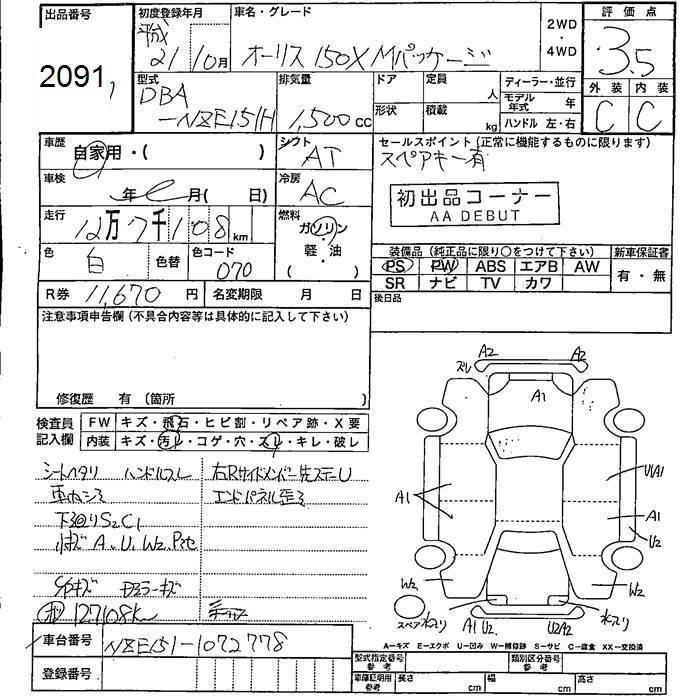 出品番号
2091
初度登録年月
平成
21 10月
車名・グレード
オーリス 150X Mパッケージ
2WD
・
4WD
評価点
3.5
外装 内装
C C
型式
DBA
-NZE151H
排気量
1,500cc
ドア
定員
人
形状
積載
kg
ディーラー・並行
モデル年式 年
ハンドル 左・右
車歴
自家用・( )
シフト
AT
セールスポイント(正常に機能するものに限ります)
スペアキー有
初出品コーナー
AA DEBUT
車検
年 月( 日)
冷房
AC
走行
12万7千108km
燃料
ガソリン
・
軽・油
( )
色
白
色替
色コード
070
装備品(純正品に限り○をつけて下さい)
新車保証書
PS PW ABS エアB AW
SR ナビ TV カワ
有・無
後日品
R券 11,670円
名変期限 月 日
注意事項申告欄(不具合内容等は具体的に記入して下さい)
修復歴 有(箇所
検査員
記入欄
FW キズ・飛石・ヒビ割・リペア跡・X要
内装 キズ・汚レ・コゲ・穴・スレ・キレ・破レ
シートヘタリ ハンドルスレ
右Rサイドメンバー先ステーU
エンドパネル歪ミ
下回りS2C1
A、U、W2
Dミラーキズ
127108K
A2 A2
スレ
A1
U1A1
A1
A1
U2
W2
W2
スペア
A1 U2 U2A2
A=キズ E=エクボ U=凹み W=補修跡 S=サビ C=腐食 XX=交換済
車台番号 NZE151-1072778
登録番号
型式指定番号
参考
類別区分番号
参考
車庫証明用
参考
長さ cm
幅 cm
高さ cm